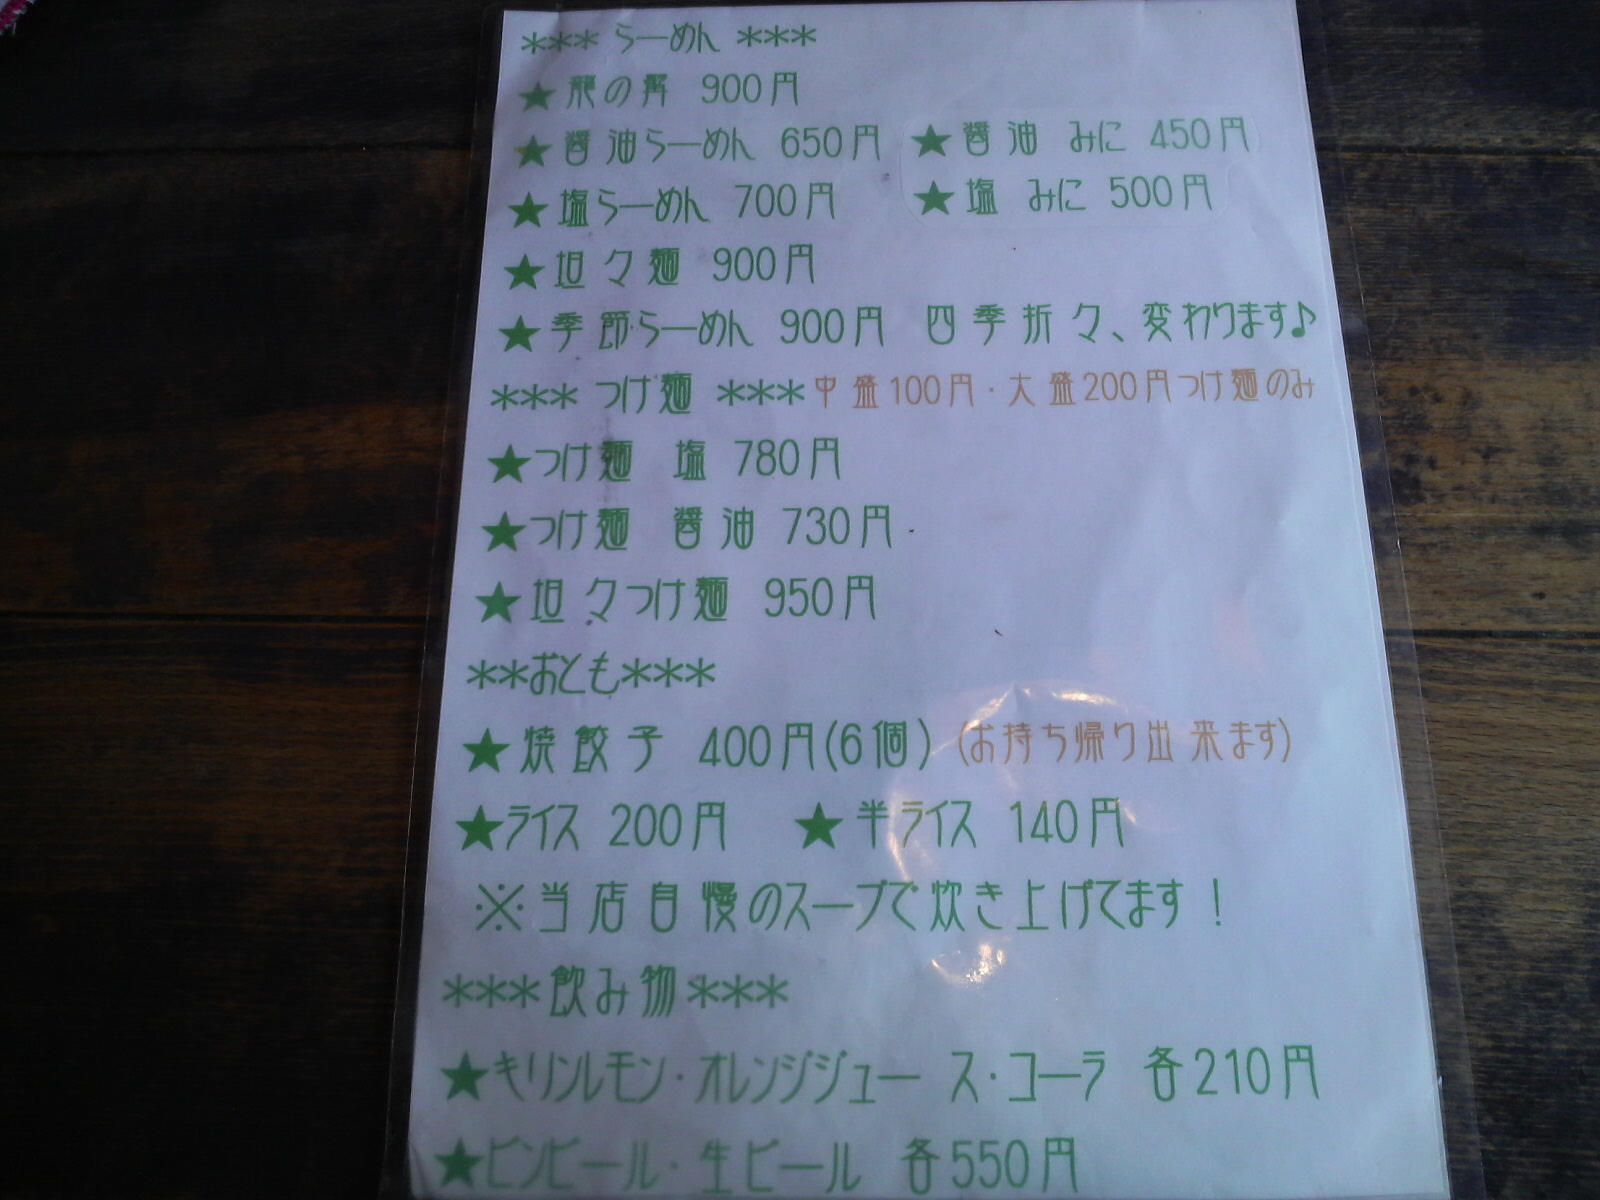 *** らーめん ***
★龍の髯 900円
★醤油らーめん 650円 ★醤油 みに 450円
★塩らーめん 700円 ★塩 みに 500円
★坦々麺 900円
★季節らーめん 900円 四季折々、変わります♪
*** つけ麺 ***中盛100円・大盛200円つけ麺のみ
★つけ麺 塩 780円
★つけ麺 醤油 730円
★坦々つけ麺 950円
**おとも***
★焼餃子 400円(6個) (お持ち帰り出来ます)
★ライス 200円 ★半ライス 140円
※当店自慢のスープで炊き上げてます！
***飲み物***
★キリンレモン・オレンジジュース・コーラ 各210円
★ビンビール・生ビール 各550円